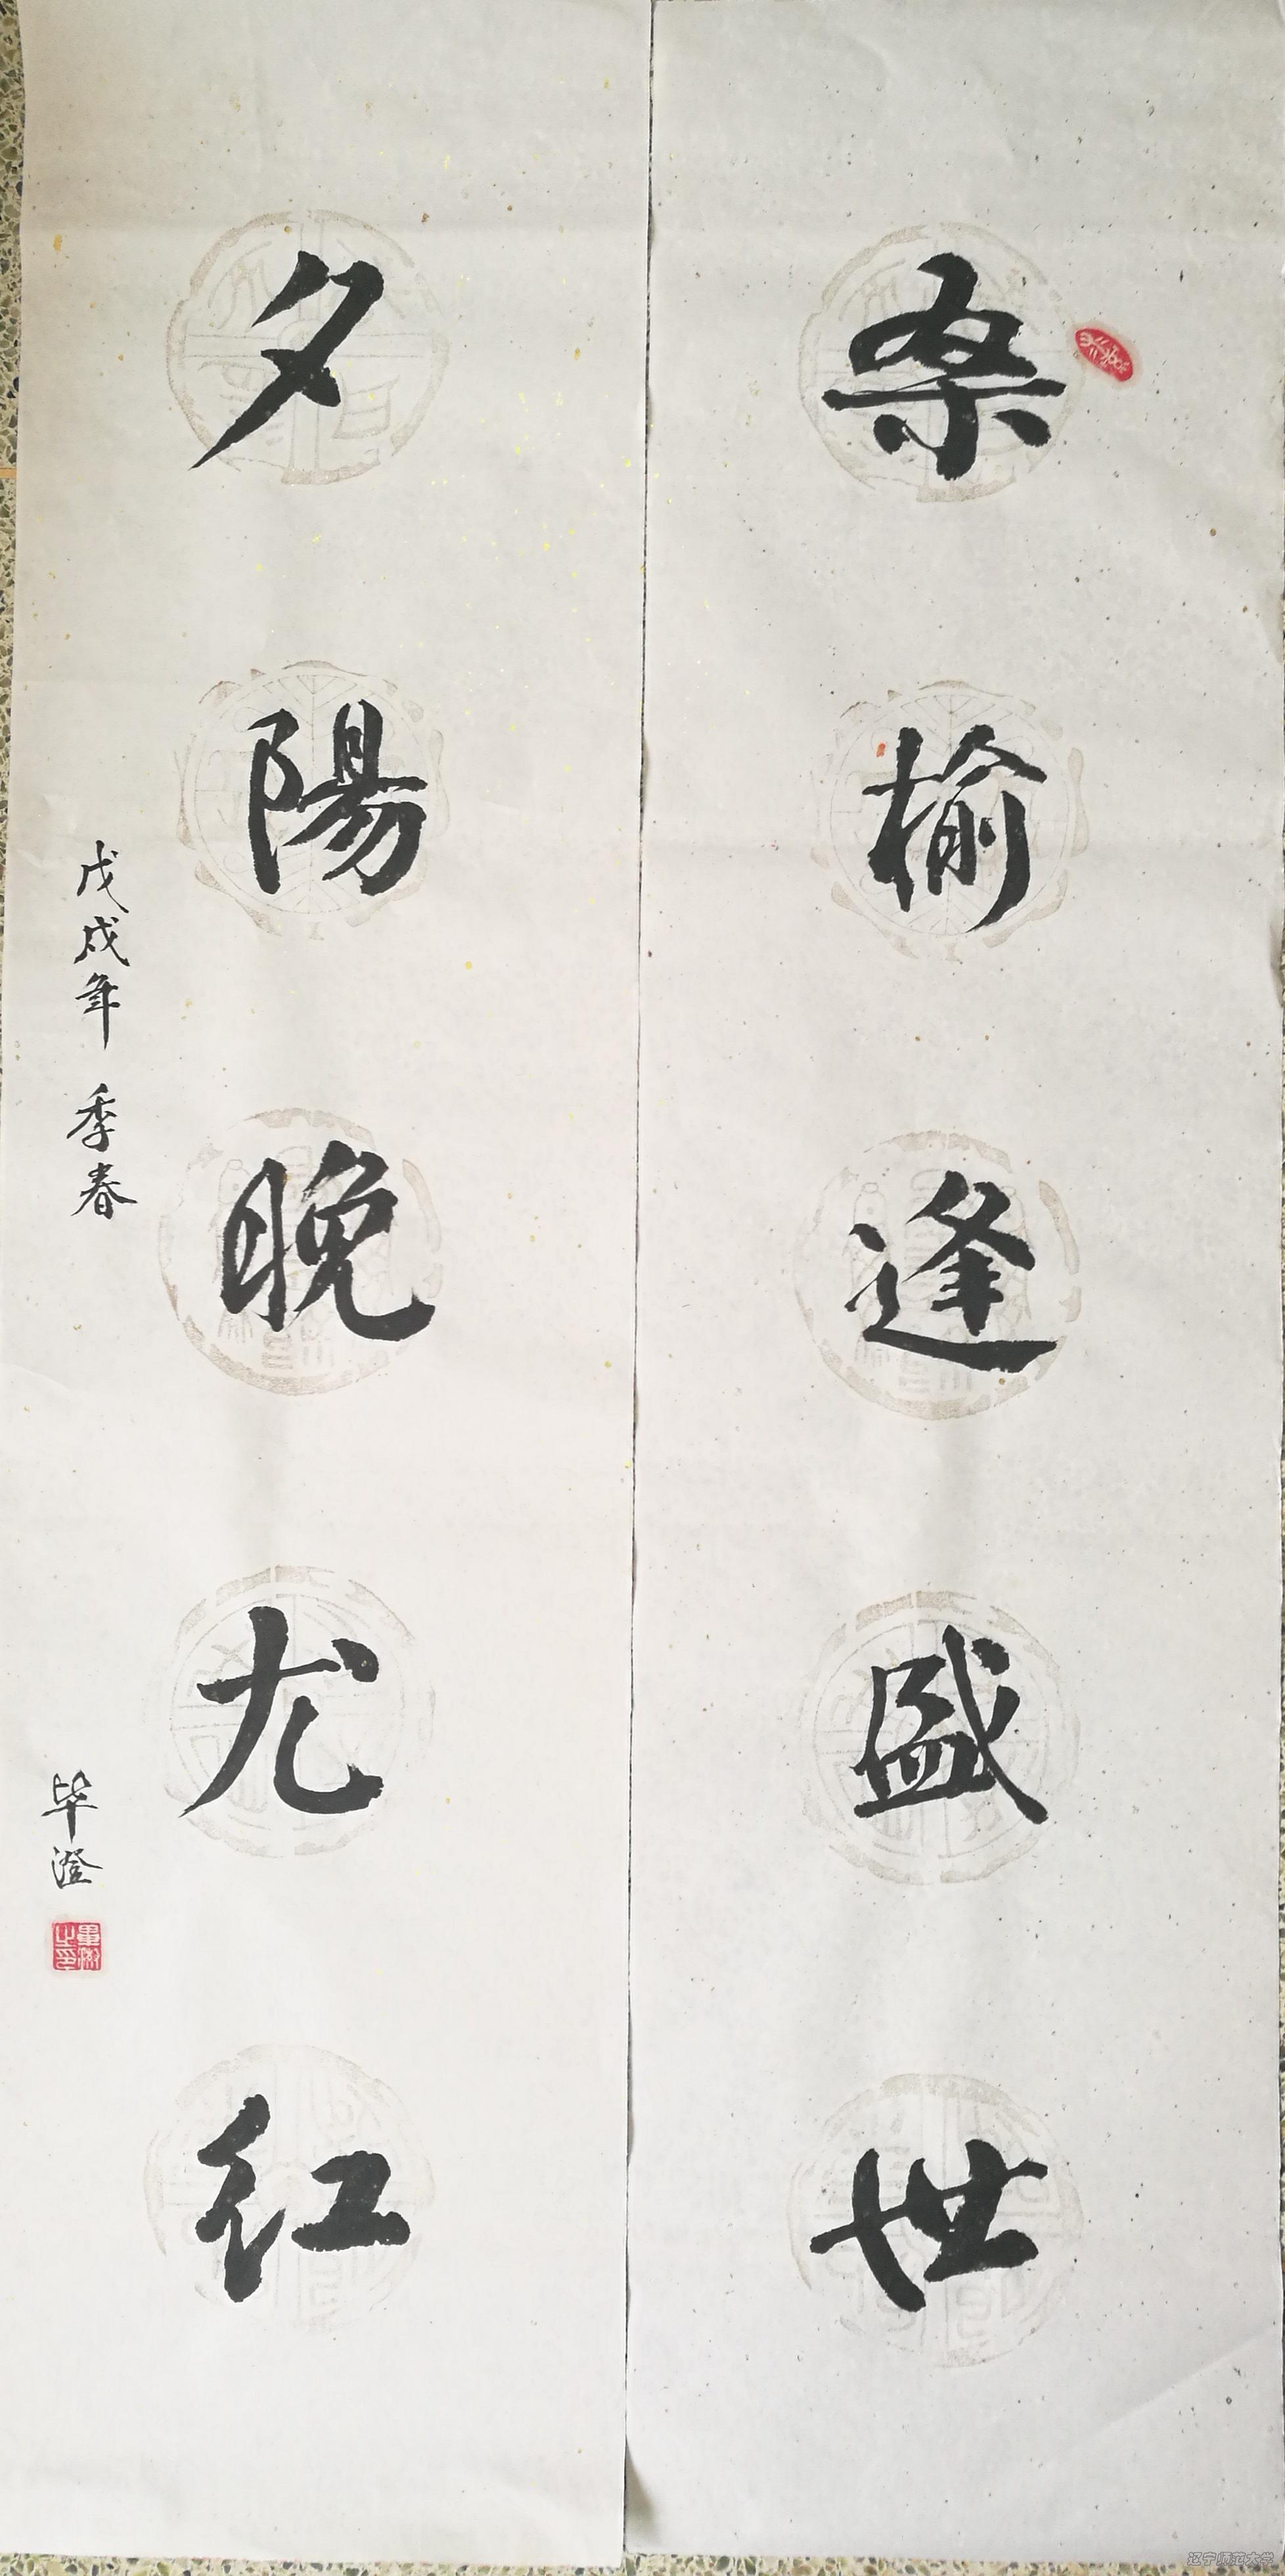 桑榆逢盛世
夕陽晚尤红
戊戌年 季春
毕澄
辽宁师范大学